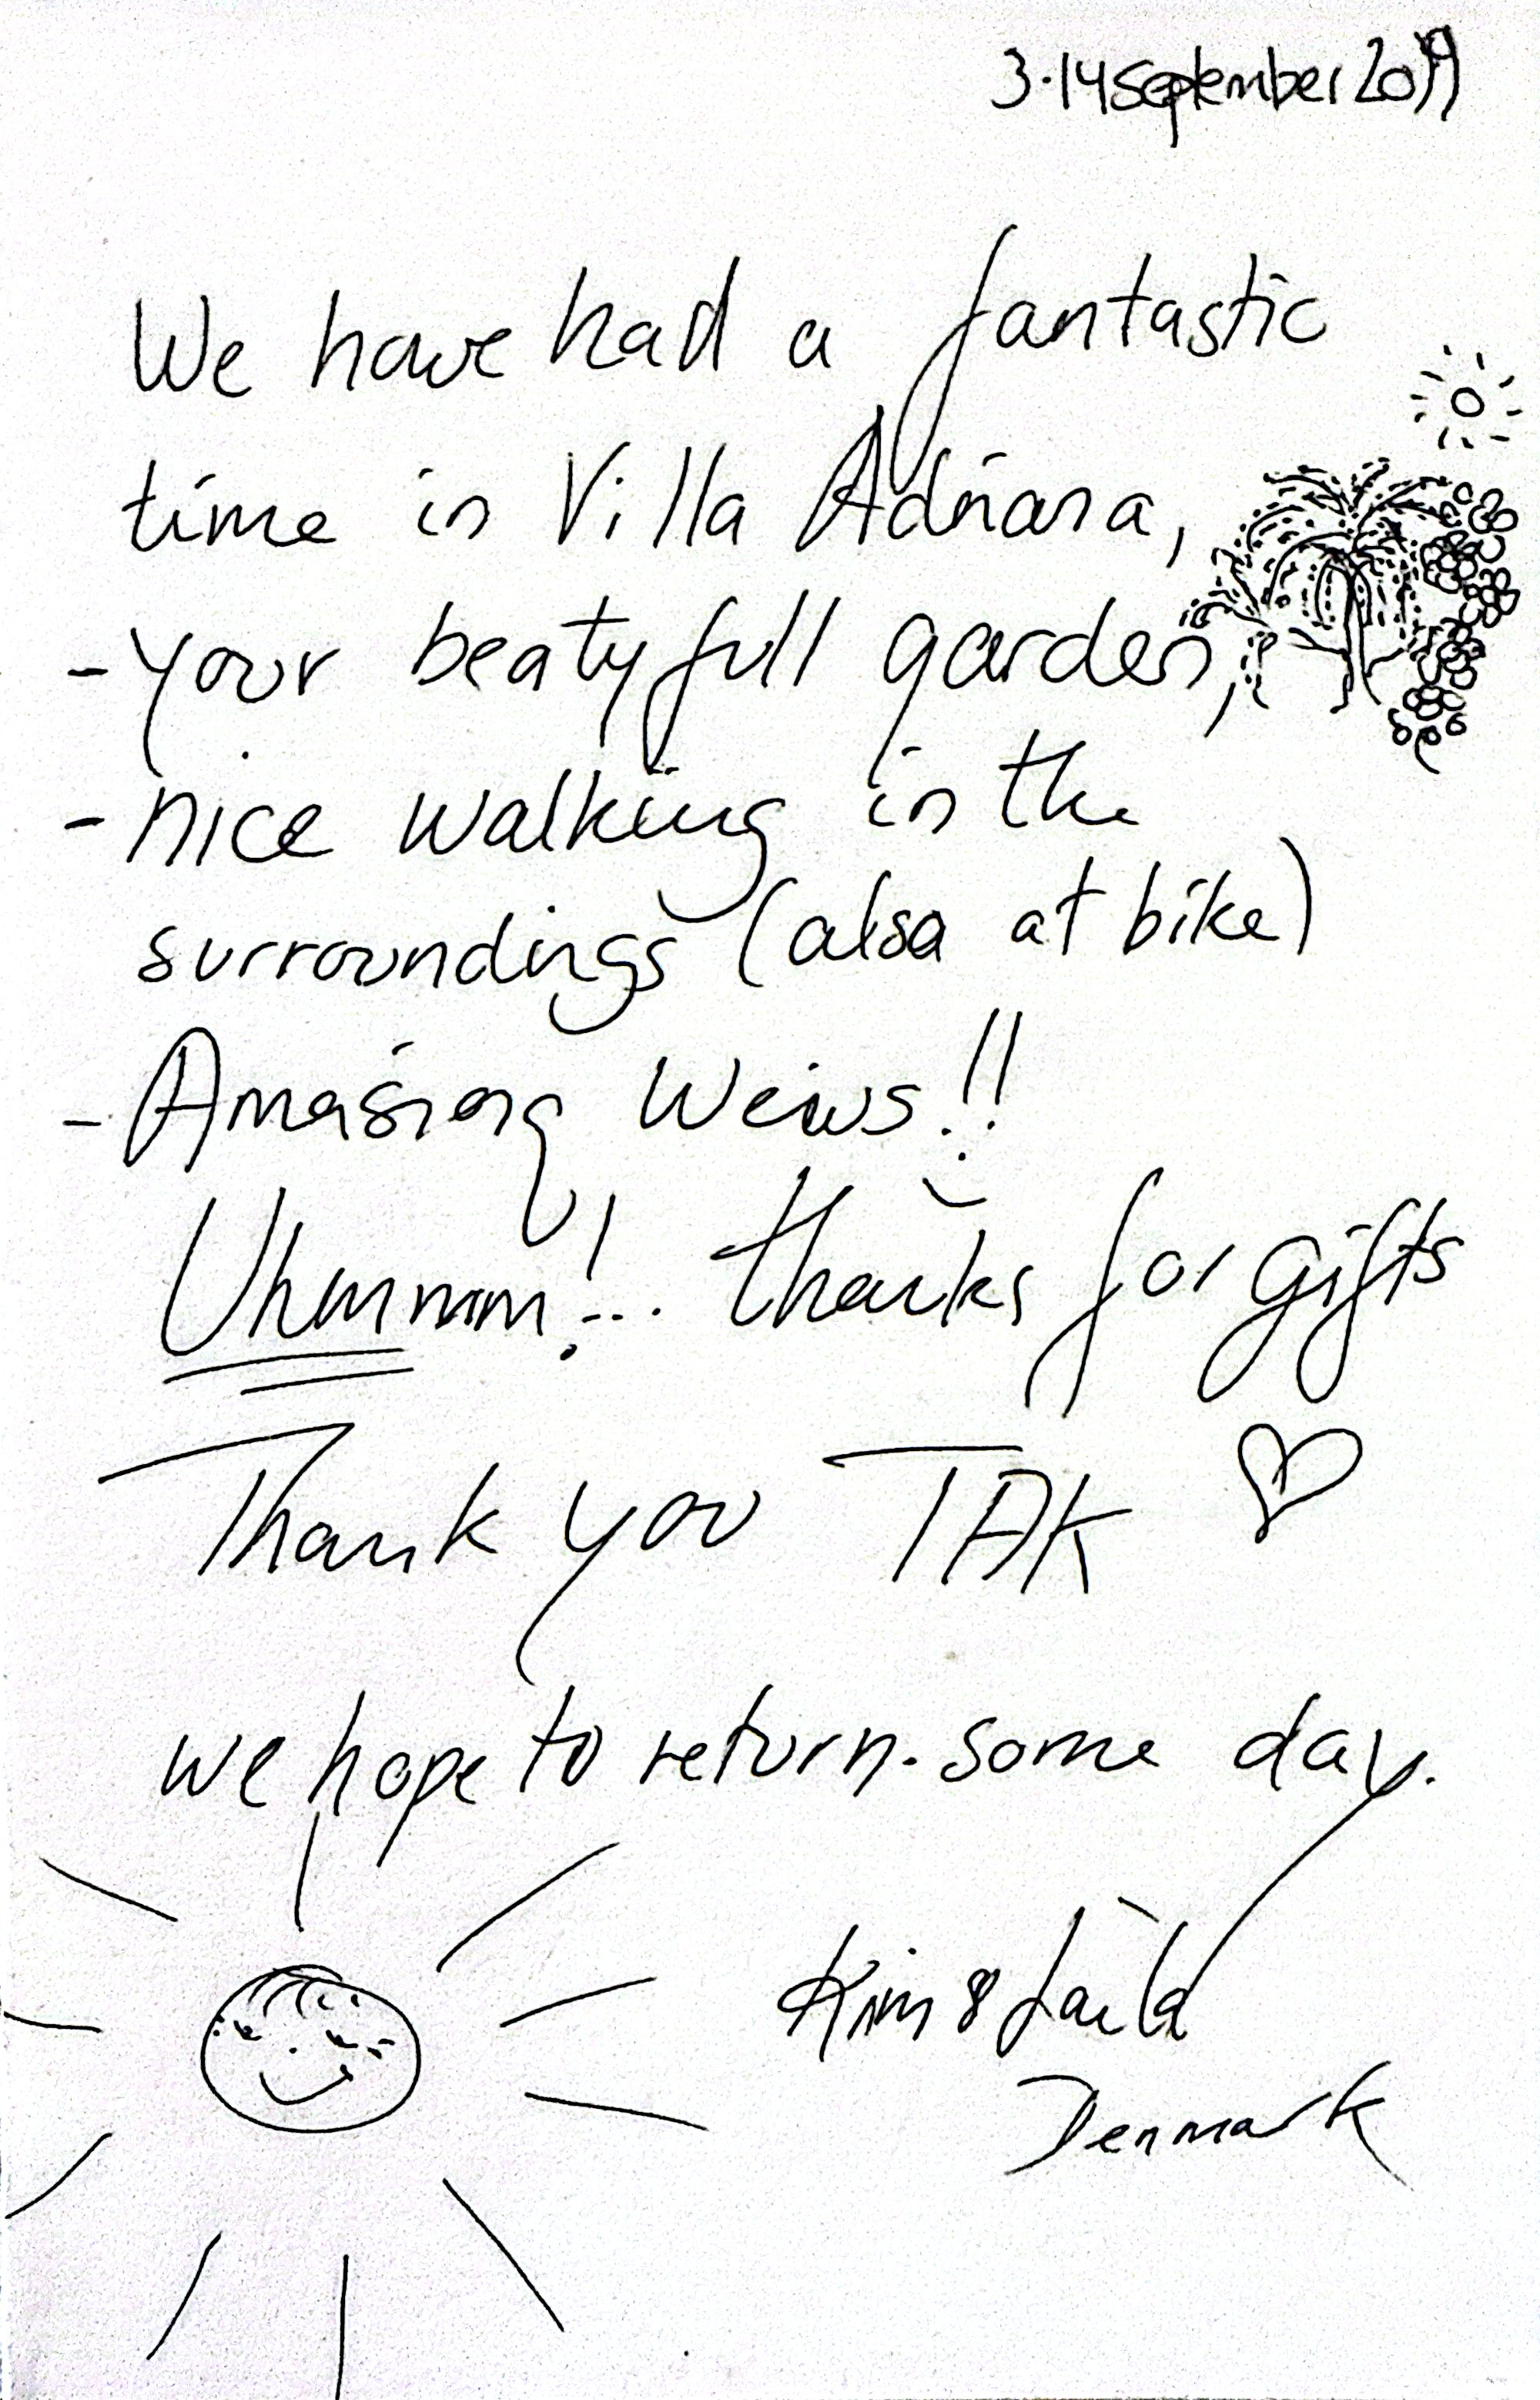 3-14 September 2019
We have had a fantastic
time in Villa Adriana,
- your beatyfull garden,
- nice walking in the
surroundings (also at bike)
- Amasing Weiws!!
Uhmmmm!... thanks for gifts
Thank you TAK
we hope to return some day.
Kim & Laila
Denmark